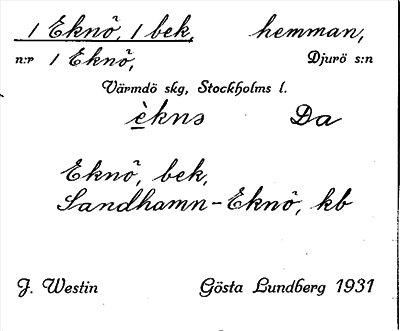 1 Eknö, 1 bek, hemman,
n:r 1 Eknö, Djurö s:n
Värmdö skg, Stockholms l.
èkns Da
Eknö, bek,
Sandhamn-Eknö, kb
J. Westin Gösta Lundberg 1931